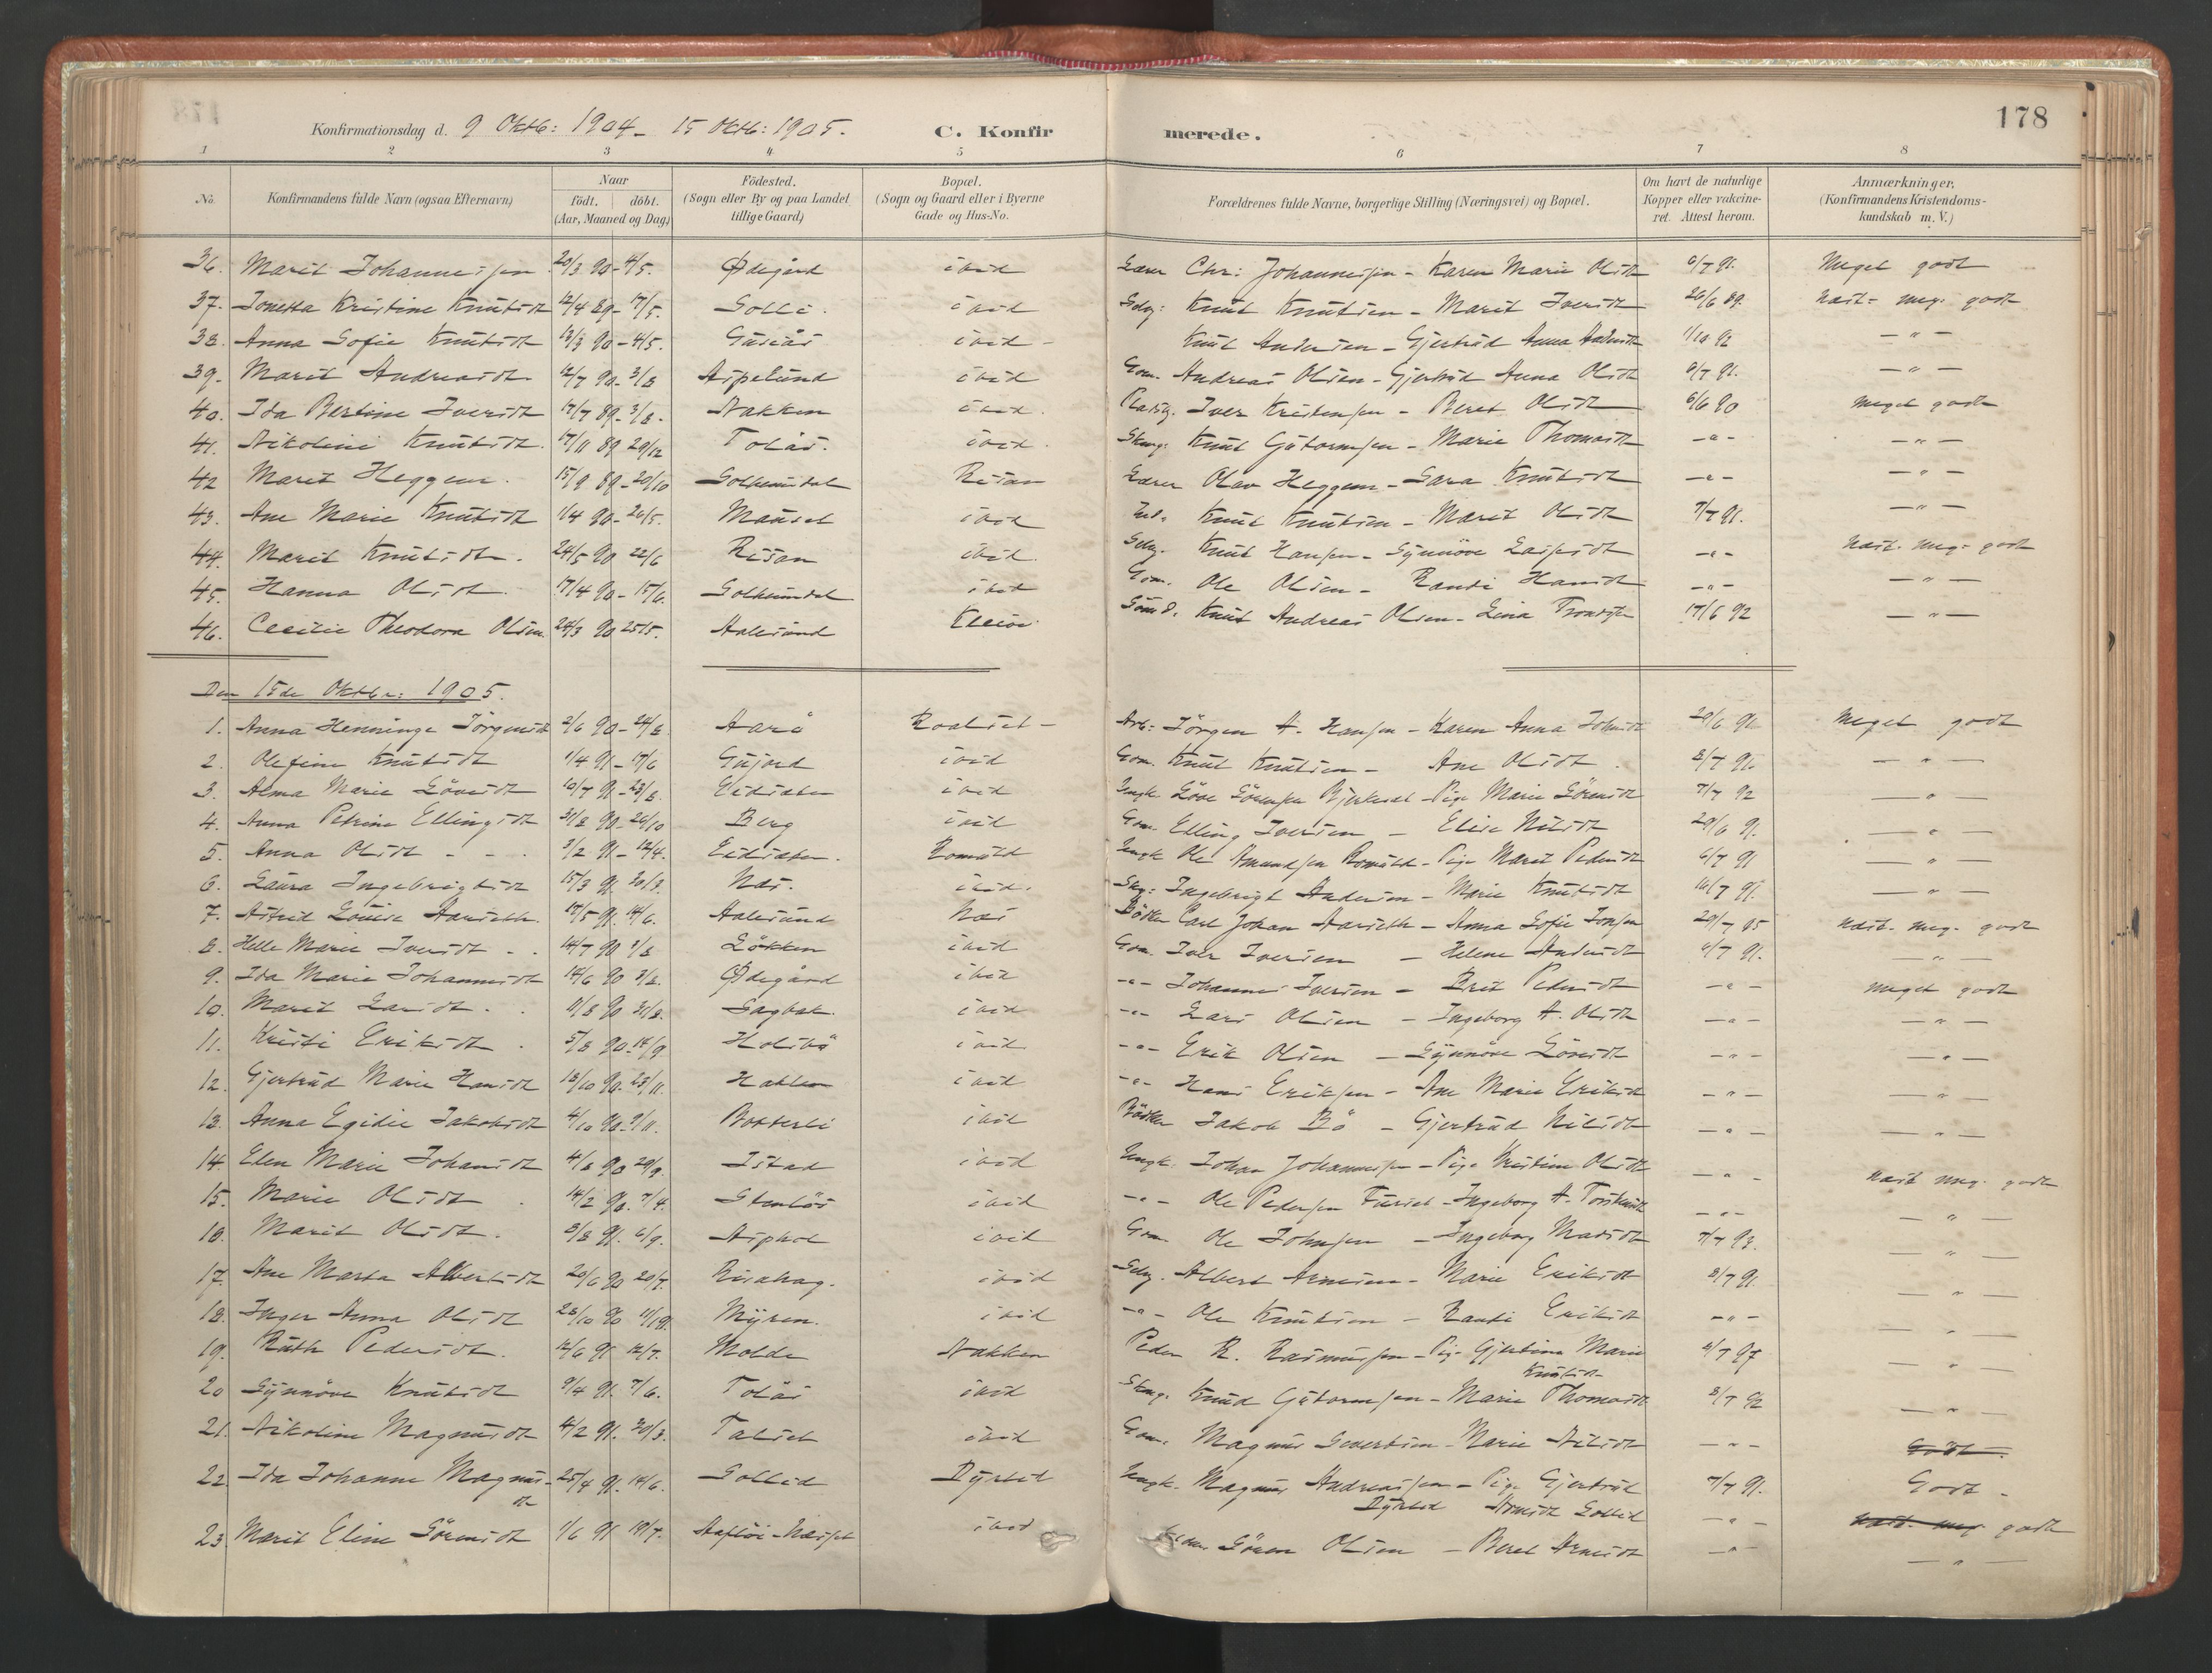 178
Konfirmationsdag d. 9 Oktb: 1904 - 15 Oktb: 1905.
C. Konfirmerede.
1 2 3 4 5 6 7 8
No.
Konfirmandens fulde Navn (ogsaa Efternavn)
Naar
födt. döbt.
(Aar, Maaned og Dag.)
Födested.
(Sogn eller By og paa Landet
tillige Gaard)
Bopæl.
(Sogn og Gaard eller i Byerne
Gade og Hus-No.
Forældrenes fulde Navne, borgerlige Stilling (Næringsvei) og Bopæl.
Om havt de naturlige
Kopper eller vakcine-
ret. Attest herom.
Anmærkninger.
(Konfirmandens Kristendoms-
kundskab m. V.)
36. Marit Johannesen 20/3 90 - 4/5. Ödegård ibid Lærer Chr: Johannesen - Karen Marie Olsdt 6/7 91. Meget godt
37. Jonetta Kristine Knutsdt 12/4 89 - 17/5. Solli. ibid Selvg: Knut Knutsen - Marit Iversdt 26/6 89. Næst- meg. godt
38. Anna Sofie Knutsdt 13/3 90 - 4/5. Gusiås ibid - Knut Andersen - Gjertrud Anna Andersdt 1/10 92 - " -
39. Marit Andreasdt 12/7 90 - 3/8 Aspelund ibid Gm. Andreas Olsen - Gjertrud Anna Olsdt 6/7 91. - " -
40. Ida Bertine Iversdt 17/7 89 - 3/8. Nakken ibid. Pladsg. Iver Kristensen - Beret Olsdt 6/6 90 Meget godt
41. Nikoline Knutsdt. 17/11 89 29/12 Tolås. ibid. Knut Gutormsen - Marie Thomasdt - " - - " -
42 Marit Heggem. 15/9 89 - 20/10 Solhemdal Resan Lærer Olav Heggem - Sara Knutsdt - " - - " -
43. Ane Marie Knutsdt 1/4 90 - 26/5. Mauset ibid Knut Knutsen - Marit Olsdt 7/7 91. - " -
44. Marit Knutsdt. 24/5 90 22/6 Resan ibid Selvg. Knut Hansen - Synnöve Lassesdt - " - Næst. meg. godt
45. Hanna Olsdt. 17/4 90 - 15/6. Solhemdal ibid Gm. Ole Olsen - Randi Hansdt - " - - " -
46. Cecilie Theodora Olsen 24/3 90 25/5. Aalesund Kleive Knut Andreas Olsen - Lina Trondsen 17/6 92 - " -
Den 15de Oktbr: 1905.
1. Anna Henninge Jörgensdt 2/6 90 - 24/8 Aarö Roalset - Arb: Jörgen A. Hansen - Karen Anna Johnsdt 29/6 91. Meget godt
2. Olefine Knutsdt 1/4 91 - 17/6 Gujord ibid Gm. Knut Knutsen - Ane Olsdt. 8/7 91. - " -
3. Alma Marie Lövesdt 10/7 91 - 23/8. Eidsæter ibid Ungk. Löve Sörensen Bjerkeset - Pige Marie Sörensdt 7/7 92 - " -
4. Anna Petrine Ellingsdt 31/8 90 - 26/10 Berg ibid Gm. Elling Iversen - Elise Nilsdt 29/6 91. - " -
5. Anna Olsdt - - . 3/2 91 - 12/4. Eidsæter. Romuld Ungk Ole Amundsen Romuld - Pige Marit Pedersdt 6/7 91 - " -
6. Laura Ingebrigtsdt 15/3 91. 30/3. Næs. ibid. Ingebrigt Andersen - Marie Knutsdt 16/7 91. - " -
7. Astrid Louise Aarseth. 17/5 91. 14/6. Aalesund Næs Bödker Carl Johan Aarseth - Anna Sofie Jonsen 29/7 95 Næst. meg. godt
8. Helle Marie Iversdt - . 14/7 90 3/8 Lökken ibid Gm. Iver Iversen - Helene Andersdt 4/7 91. - " -
9. Ida Marie Johannesdt 14/6 90 3/8. Ödegård ibid - " - Johannes Iversen - Brit Pedersdt - " - Meget godt
10. Marit Larsdt. . 11/8 90 31/8. Sagbak. ibid - " - Lars Olsen - Ingeborg A. Olsdt - " - - " -
11. Kristi Eriksdt. 5/8 90. 14/9. Holsbö ibid - " - Erik Olsen - Synnöve Lövesdt - " - - " -
12. Gjertrud Marie Hansdt 18/10 90. 23/11. Hatlen ibid - " - Hans Eriksen - Ane Marie Eriksdt - " - - " -
13. Anna Egidie Jakobsdt 4/10 90. 9/11. Botterli ibid Bödker Jakob Bö - Gjertrud Nilsdt - " - - " -
14. Elen Marie Johansdt 4/8 90 29/9. Istad ibid Ungk. Johan Johannesen - Pige Kristine Olsdt - " - Næst meg. godt
15. Marie Olsdt. 14/2 90. 7/4. Stenlös ibid - " - Ole Pedersen Furset - Ingeborg A. - " - - " -
16. Marit Olsdt. 3/8 91. 6/9. Asphol ibid Gm. Ole Johnsen - Ingeborg Madsdt 7/7 93. - " -
17. Ane Marta Albertsdt 20/6 90 20/7. Risahag. ibid Selvg. Albert Arnesen - Marie Eriksdt 8/7 91. - " -
18. Inger Anna Olsdt 28/10 90 11/1 91. Myren. ibid - " - Ole Knutsen - Randi Eriksdt - " - - " -
19. Ruth Pedersdt. 12/6 91 12/7. Molde Nakken Peder R. Rasmussen - Pige Gjertine Marie 4/7 97 - " -
Knutsdt
20 Synnöve Knutsdt 9/4 91. 7/6. Tolås ibid Knud Gutormsen - Marie Thomasdt 8/7 92 - " -
21. Nikoline Magnusdt 4/2 91. 30/3. Talset ibid Gm. Magnus Severtsen - Marie Nilsdt - " - Godt.
22. Ida Johanne Magnus- 25/4 91. 14/6. Sollid Dyrlid Ungk. Magnus Andreassen - Pige Gjertrud 7/7 91. Godt -
dt Dyrlid Arnesdt Sollid
23 Marit Eline Sörensdt 1/6 91. 19/7. ibid Gm. Sören Olsen - Beret Arnesdt - " - Næst. meg godt
- " -